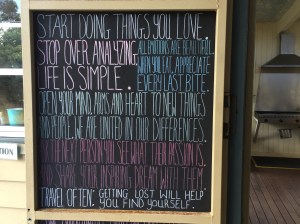 START DOING THINGS YOU LOVE.
STOP OVER ANALYZING,
LIFE IS SIMPLE.
ALL EMOTIONS ARE BEAUTIFUL.
WHEN YOU EAT, APPRECIATE
EVERY LAST BITE.
OPEN YOUR MIND, ARMS AND HEART TO NEW THINGS
AND PEOPLE, WE ARE UNITED IN OUR DIFFERENCES.
ASK THE NEXT PERSON YOU SEE WHAT THEIR PASSION IS,
AND SHARE YOUR INSPIRING DREAM WITH THEM.
TRAVEL OFTEN; GETTING LOST WILL HELP
YOU FIND YOURSELF.
TION